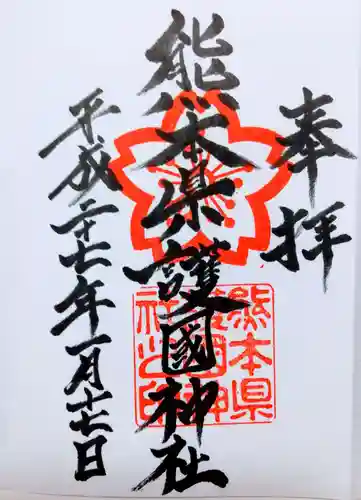 奉拝
熊本県護國神社
平成二十七年一月十七日
熊本県
護国神
社之印